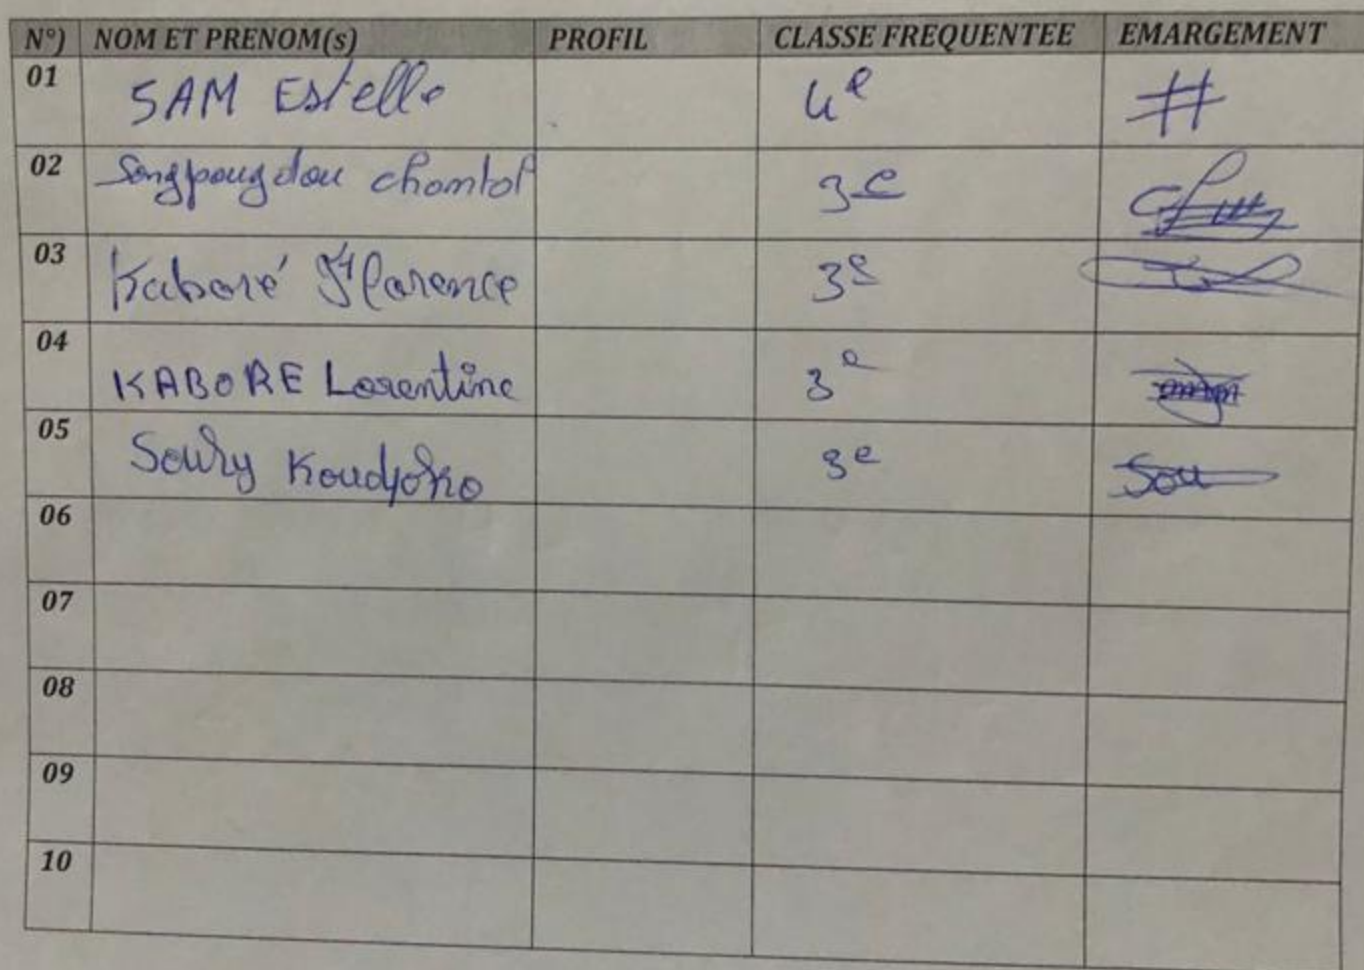 N°) NOM ET PRENOM(s) PROFIL CLASSE FREQUENTEE EMARGEMENT
01 SAM Estelle 4e #
02 Songpougdou chantal 3e
03 Kaboré Florence 3e
04 KABORE Lorentine 3e
05 Soury Koudjoko 3e Sou
06
07
08
09
10